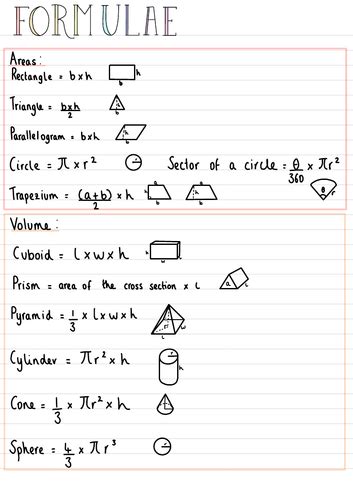 FORMULAE
Areas:
Rectangle = b x h
Triangle = b x h / 2
Parallelogram = b x h
Circle = π x r² Sector of a circle = θ/360 x πr²
Trapezium = (a+b)/2 x h
Volume:
Cuboid = l x w x h
Prism = area of the cross section x L
Pyramid = 1/3 x l x w x h
Cylinder = πr² x h
Cone = 1/3 x πr² x h
Sphere = 4/3 x πr³